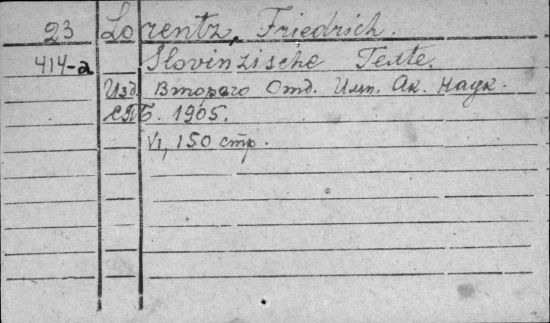 23 Lorentz, Friedrich.
414-a Slovinzische Texte.
Изд. Второго Отд. Имп. Ак. Наук.
СПБ. 1905.
VI, 150 стр.